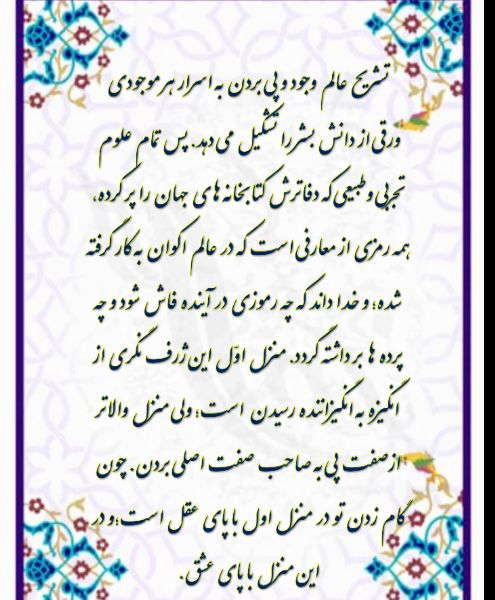 تشریح عالم وجود و پی بردن به اسرار هر موجودی
ورقی از دانش بشر را تشکیل می دهد. پس تمام علوم
تجربی و طبیعی که دفاترش کتابخانه های جهان را پر کرده،
همه رمزی از معارفی است که در عالم اکوان به کار گرفته
شده؛ و خدا داند که چه رموزی در آینده فاش شود و چه
پرده ها برداشته گردد. منزل اوّل این ژرف نگری از
انگیزه به انگیزاننده رسیدن است؛ ولی منزل والاتر
از صفت پی به صاحب صفت اصلی بردن. چون
گام زدن تو در منزل اول با پای عقل است؛ و در
این منزل با پای عشق.